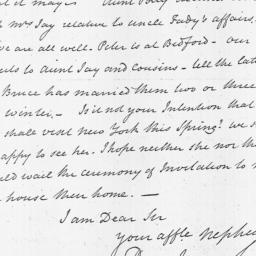 Mrs Jay relative to uncle Fady's affairs.
we are all well. Peter is at Bedford - our
to Aunt Jay and Cousins - tell the latter
Bruce has married them two or three
winter. - Is it not your Intention that
shall visit New York this Spring? we s
happy to see her. I hope neither she nor th
wait the ceremony of Invitation to
house their home. -
I am Dear Sir
your affte. Nephew